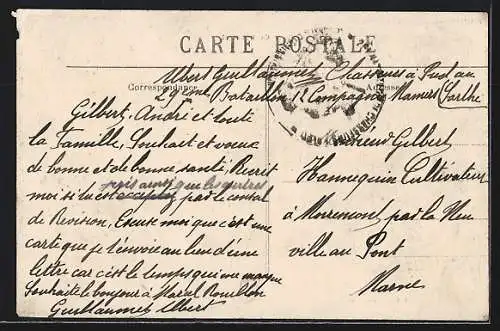 CARTE POSTALE
Correspondance
Adresse
Albert Guillaumet Chasseurs à Pied au
29eme Bataillon 12 Compagnie Mamers (Sarthe
Gilbert, André et toute
la Famille, Souhait et voeux
de bonne et de bonne santé, Recrit
moi si tu est pris ainsi que les autres par le conseil
de Revision, Excuse moi que c'est une
carte que je t'envoie au lieu d'une
lettre car c'est le temps qui me manque
Souhaite le bonjour à Marcel Rouillon
Guillaumet Albert
Monsieur Gilbert
Hannequin Cultivateur
à par la Neu
ville au Pont
Marne